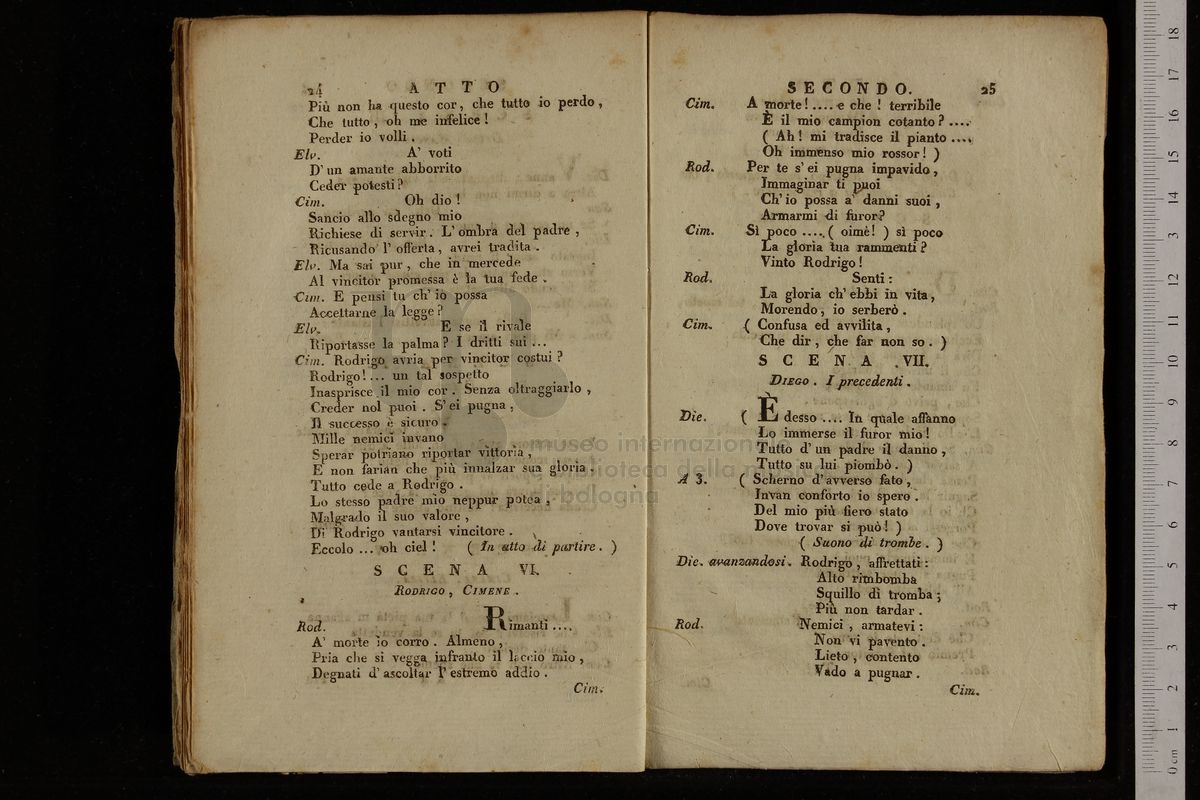 24 ATTO
Più non ha questo cor, che tutto io perdo,
Che tutto, oh me infelice!
Perder io volli.
Elv. A' voti
D'un amante abborrito
Ceder potesti?
Cim. Oh dio!
Sancio allo sdegno mio
Richiese di servir. L'ombra del padre,
Ricusando l'offerta, avrei tradita.
Elv. Ma sai pur, che in mercede
Al vincitor promessa è la tua fede.
Cim. E pensi tu ch'io possa
Accettarne la legge?
Elv. E se il rivale
Riportasse la palma? I dritti sui...
Cim. Rodrigo avria per vincitor costui?
Rodrigo!... un tal sospetto
Inasprisce il mio cor. Senza oltraggiarlo,
Creder nol puoi. S'ei pugna,
Il successo è sicuro.
Mille nemici invano
Sperar potriano riportar vittoria,
E non farian che più innalzar sua gloria.
Tutto cede a Rodrigo.
Lo stesso padre mio neppur potea,
Malgrado il suo valore,
Di Rodrigo vantarsi vincitore.
Eccolo... oh ciel! (In atto di partire.)
SCENA VI.
RODRIGO, CIMENE.
Rod. Rimanti....
A' morte io corro. Almeno,
Pria che si vegga infranto il laccio mio,
Degnati d'ascoltar l'estremo addio.
Cim.
SECONDO. 25
Cim. A morte!.... e che! terribile
È il mio campion cotanto?....
(Ah! mi tradisce il pianto....
Oh immenso mio rossor!)
Rod. Per te s'ei pugna impavido,
Immaginar ti puoi
Ch'io possa a' danni suoi,
Armarmi di furor?
Cim. Sì poco....(oimè!) sì poco
La gloria tua rammenti?
Vinto Rodrigo!
Rod. Senti:
La gloria ch'ebbi in vita,
Morendo, io serberò.
Cim. (Confusa ed avvilita,
Che dir, che far non so.)
SCENA VII.
DIEGO. I precedenti.
Die. (È desso.... In quale affanno
Lo immerse il furor mio!
Tutto d'un padre il danno,
Tutto su lui piombò.)
A 3. (Scherno d'avverso fato,
Invan conforto io spero.
Del mio più fiero stato
Dove trovar si può!)
(Suono di trombe.)
Die. avanzandosi. Rodrigo, affrettati:
Alto rimbomba
Squillo di tromba;
Più non tardar.
Rod. Nemici, armatevi:
Non vi pavento.
Lieto, contento
Vado a pugnar.
Cim.
museo internazionale
e biblioteca della musica
di bologna
0 cm 1 2 3 4 5 6 7 8 9 10 11 12 13 14 15 16 17 18